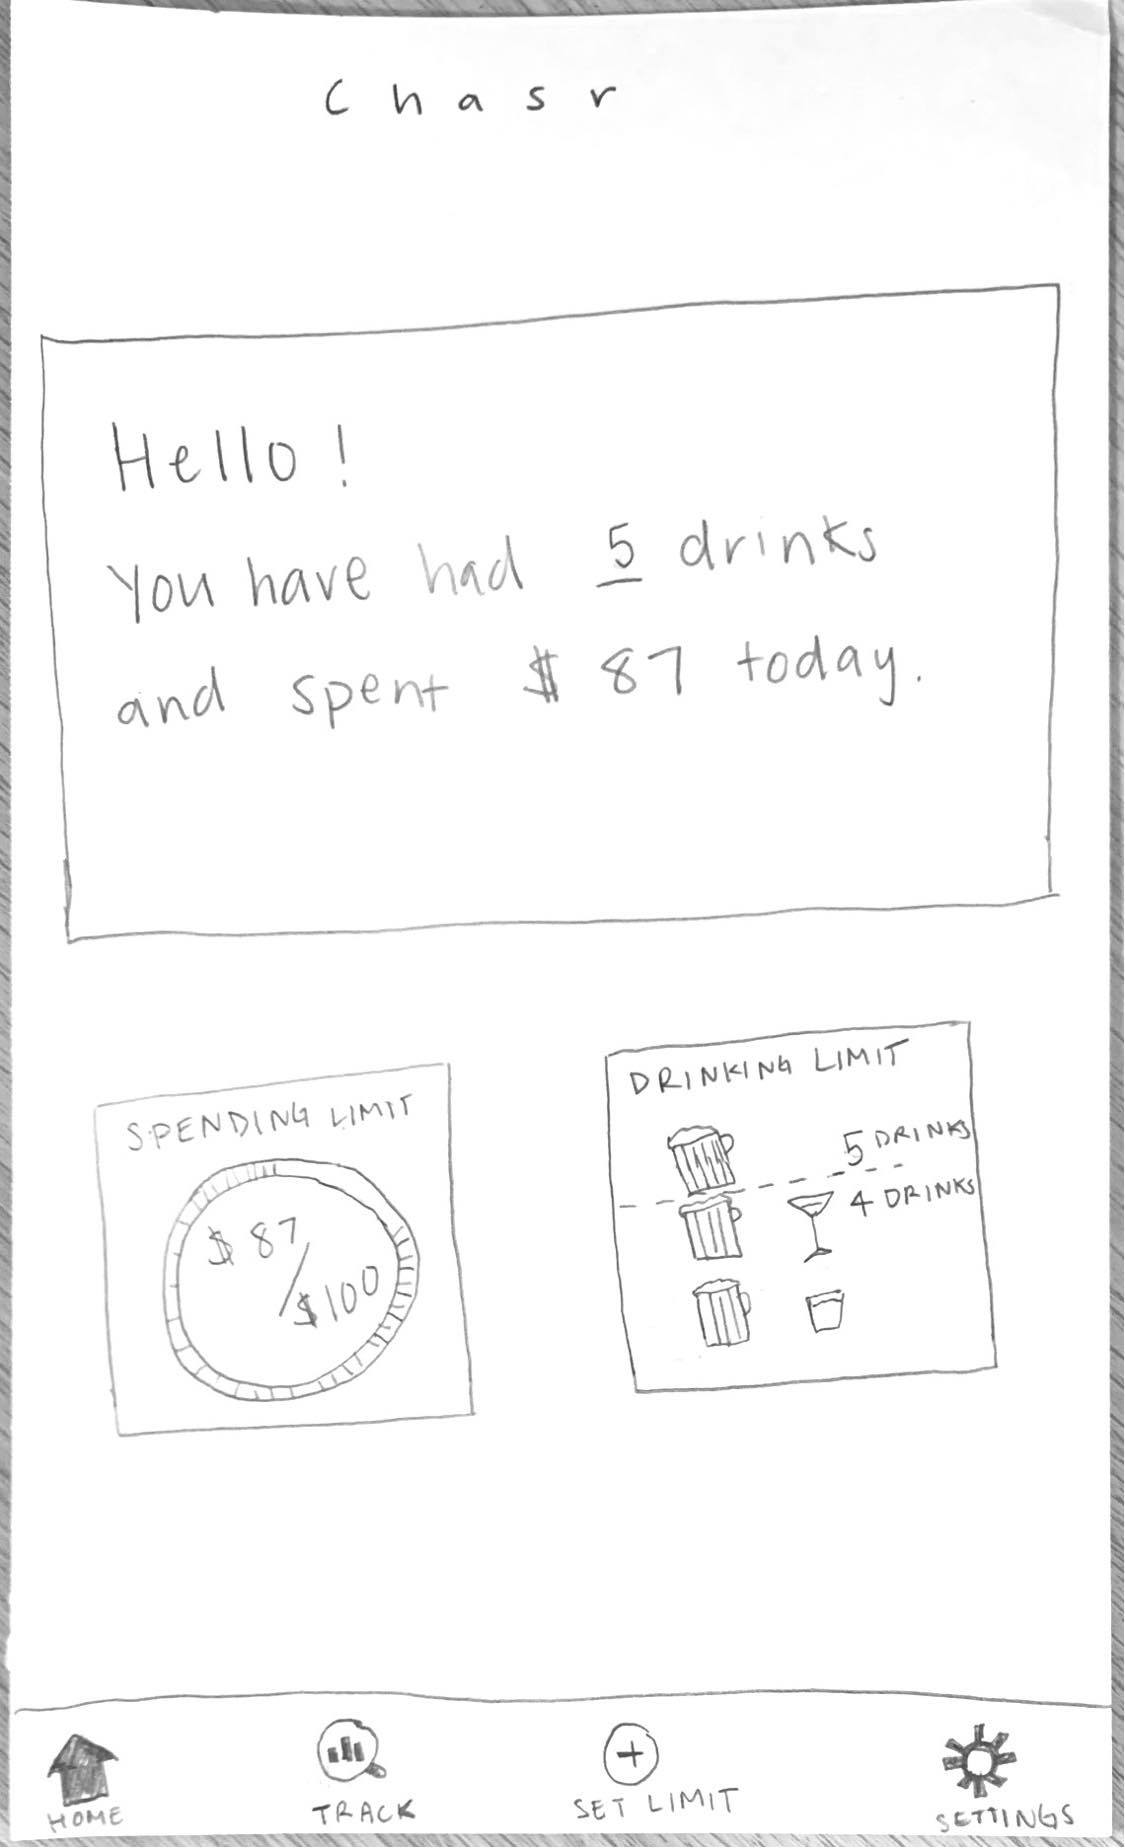 Chasr
Hello!
You have had 5 drinks
and spent $ 87 today.
SPENDING LIMIT
$ 87
/ $100
DRINKING LIMIT
5 DRINKS
4 DRINKS
HOME
TRACK
SET LIMIT
SETTINGS